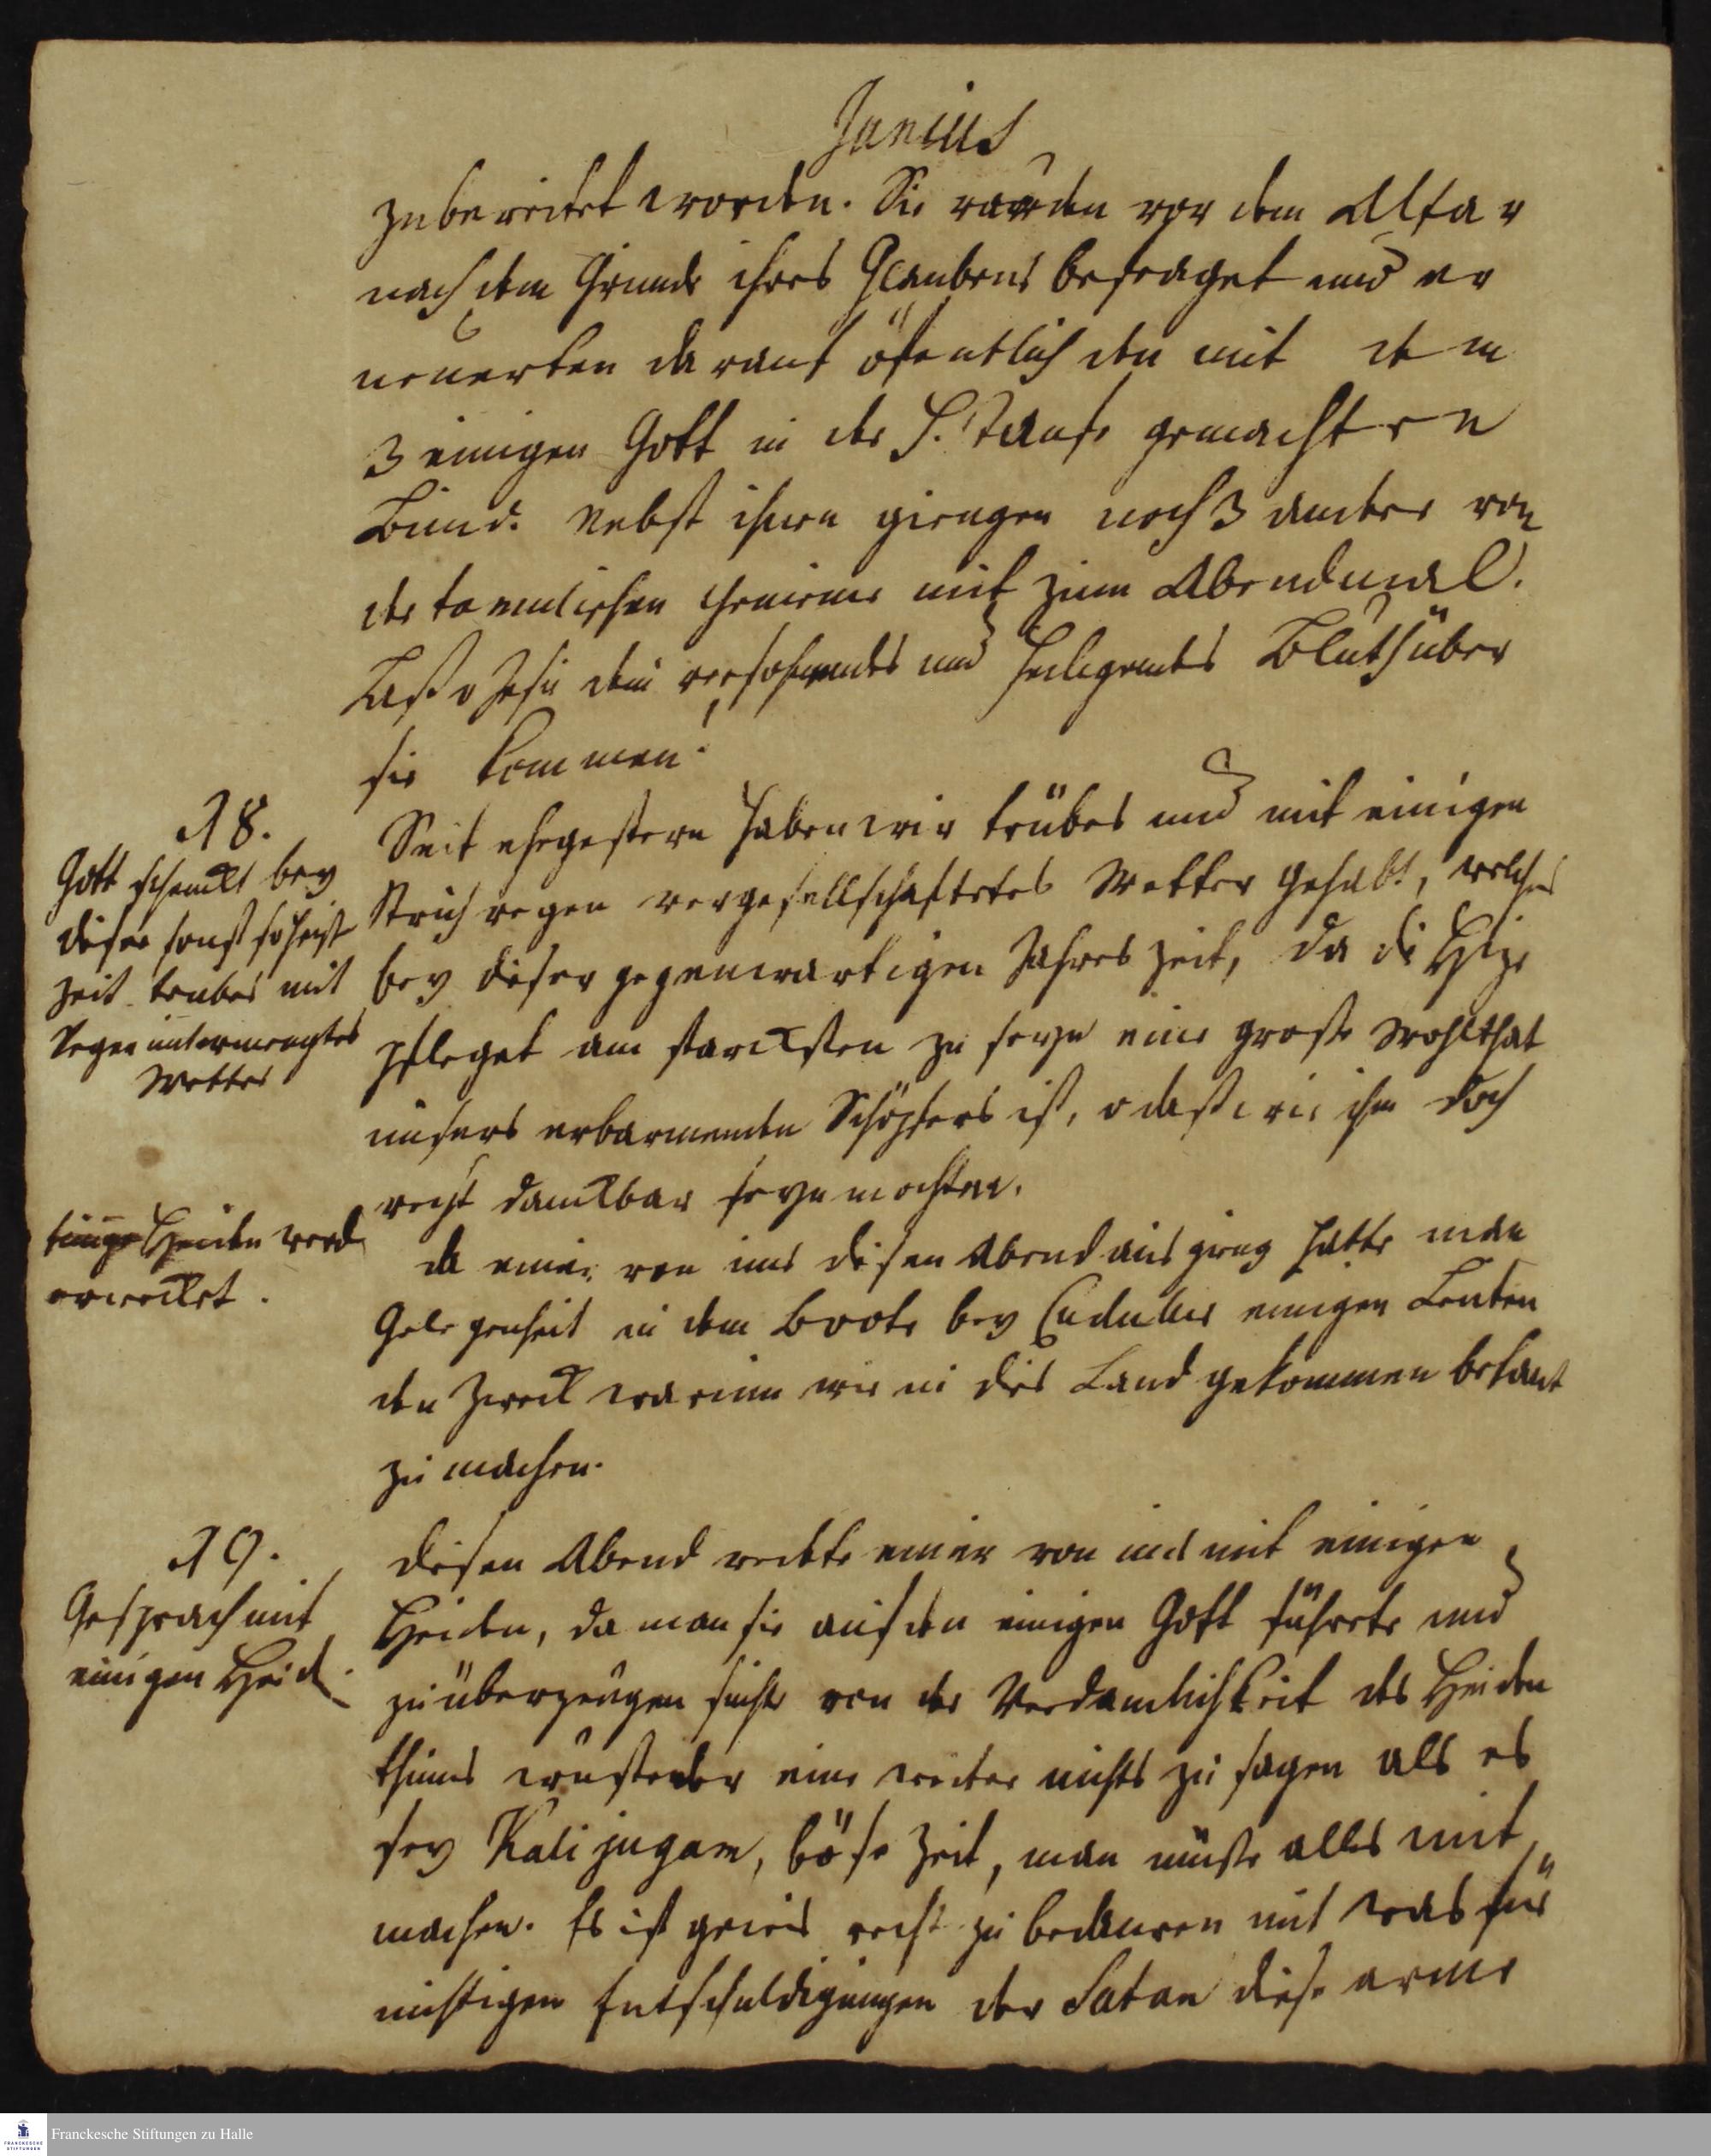 Junius
zubereitet worden. Sie wurden vor dem Altar
nach dem Grunde ihres Glaubens befraget und er
neuerten darauf öfentlich den mit dem
3 einigen Gott in der H. Taufe gemachten
Bund. Nebst ihnen giengen noch 3 andere von
der tamulischen Gemeine mit zum Abendmal.
Laß o Jesu dein versohnendes und heiligendes Bluth über
sie kommen!
18.
Gott schenckt bey
dieser sonst so heiße
Zeit trubes mit
Regen untermengtes
Wetter
Seit ehegestern haben wir trübes und mit einigen
Strichregen vergesellschaftetes Wetter gehabt, welches
bey dieser gegenwartigen Jahres Zeit, da die Hize
pfleget am starcksten zu seyn eine große Wohlthat
unsers erbarmenden Schöpfers ist, o daß wir ihm doch
recht danckbar seyn mochten.
einige Heiden werd
erwecket.
da einer von uns diesen Abend aus gieng hatte man
Gelegenheit in dem Boote bey Cudulur einigen Leuten
den Zweck warum wir in dies Land gekommen bekant
zu machen.
19.
Gesprach mit
einigen Heid.
diesen Abend redete einer von uns mit einigen
Heiden, da man sie auf den einigen Gott führete und
zu überzeugen suchte von der Verdamlichkeit des Heiden
thums wuste der eine weiter nichts zu sagen als es
sey Kalijugam, böse Zeit, man müste alles mit
machen. Es ist gewis recht zu bedauren mit was für
nichtigen Entschuldigungen der Satan diese arme
Franckesche Stiftungen zu Halle